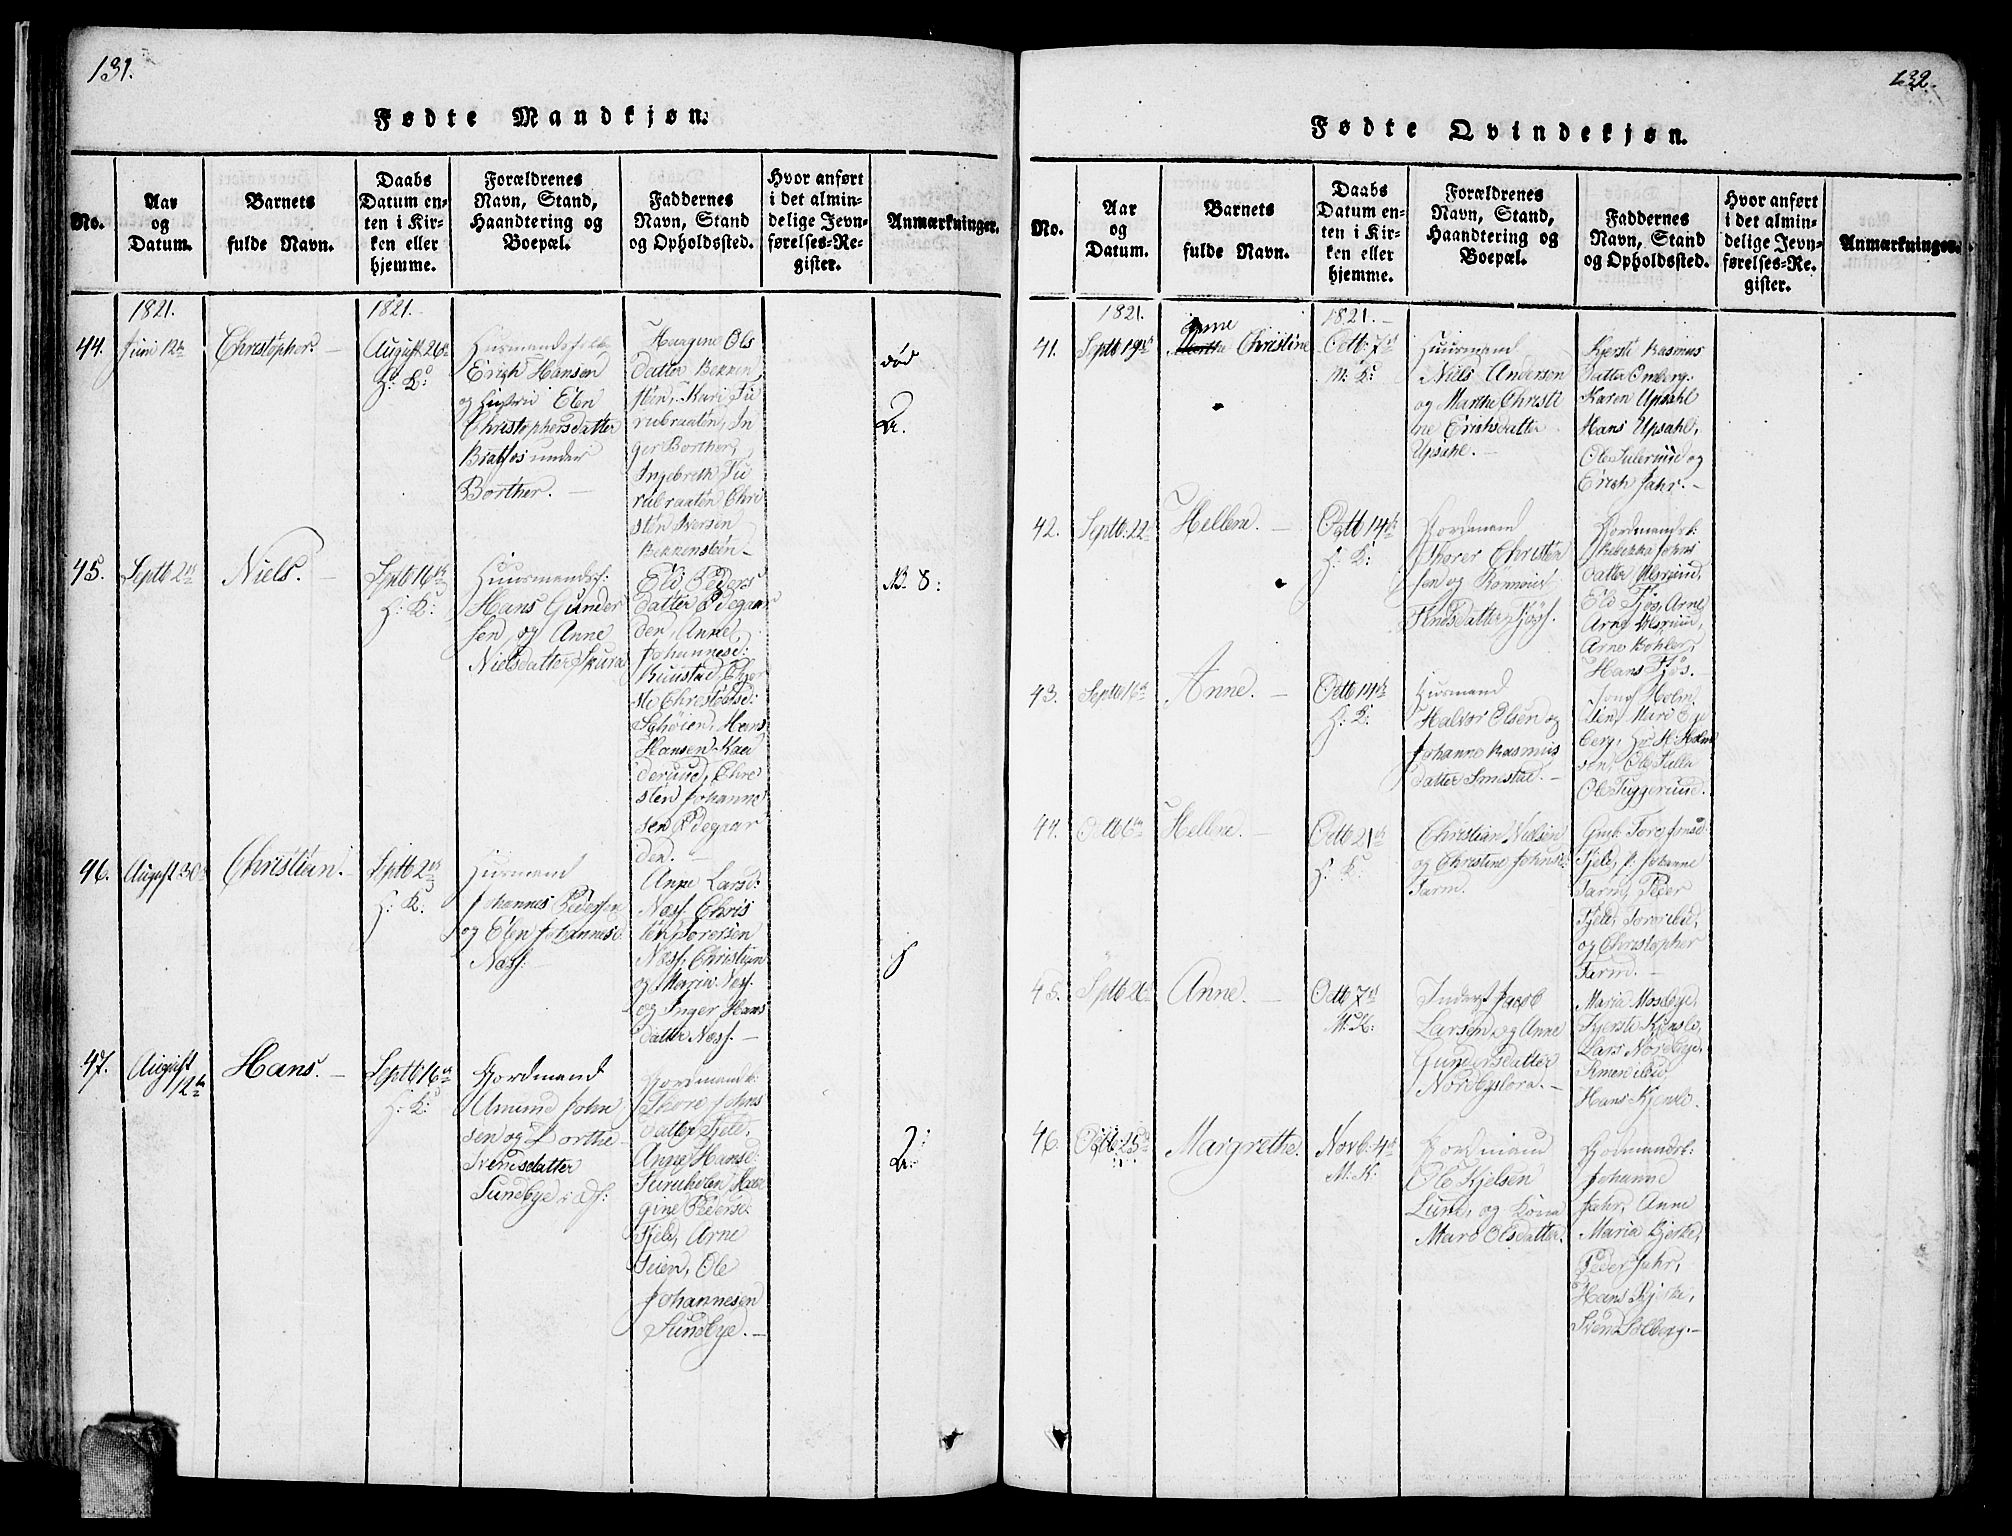 131.
Fødte Mandkjøn.
No.
Aar
og
Datum.
Barnets
fulde Navn.
Daabs
Datum en-
ten i Kir-
ken eller
hjemme.
Forældrenes
Navn, Stand,
Haandtering og
Boepæl.
Faddernes
Navn, Stand
og Opholdssted.
Hvor anført
i det almin-
delige Jevn-
førelses-Re-
gister.
Anmærkninger.
1821.
1821.
44.
Juni 12te
Christopher.
August 26de
H: K:
Erich Hansen
og Hustrue Elen
Christophersdatter
Braf͡os under
Borther.
Margine Ols
datter Bekken
sten, Kari Fu
rubraaten, In
ger Borther,
Ingebreth Fu
rubraaten Chri
sten Iversen
Bekkensten
død
45.
Septb 2den
Niels.
Septb 16de
H: K:
Huusmandsf:
Hans Gunder
sen, og Anne
Nielsdatter Skura
Eli Peders
datter Ødegaar
den, Anne
Johannesd:
Ruustad, Kjer
sti Christensd:
Schøien, Hans
Hansen
Chre
sten Johanne
sen Ødegaar
den.
N. 8:
46.
August 30te
Christian.
Septb 2den
H: K:
Huusmand
Johannes Pedersen
og Elen Johannesd:
Næss.
Anne Larsd:
Næss. Chris
ten Torersen
Næss, Christian
og Maria Næss.
og Inger Hans
datter Næss.
47.
August
12te
Hans.
Septb 16de
H: K:
Gordmand
Amund John
sen og Dorthe
Svensdatter
Sundbye
Gordmandsk:
Thore Johns
datter Fjeld,
Anne Hansd:
Furuholen
gine Pedersd:
Fjeld, Arne
Teien, Ole
Johannesen
Sundbye.
132.
Fødte Qvindekjøn.
No.
Aar
og
Datum.
Barnets
fulde Navn.
Daabs
Datum en-
ten i Kir-
ken eller
hjemme.
Forældrenes
Navn, Stand,
Haandtering og
Boepæl.
Faddernes
Navn, Stand
og Opholdssted.
Hvor anført
i det almin-
delige Jevn-
førelses-Re-
gister.
Anmærkninger.
1821.
1821.
41.
Septb 19de
Anne
Marthe Christine
Octb: 7de
M: K:
Huusmand
Niels Andersen
og Marthe Christi
ne Erichsdatter
Upsahl.
Kjersti Rasmus
datter Omberg.
Karen Upsahl
Hans Upsahl,
Ole Sulerud og
Erich Jahr.
42.
Septb: 22
Hellene.
Octb 14de
H: K:
Gordmand
Thorer Christen
sen og
Knudsdatter
Gordmandsk:
Rebekka Johns
datter
Eli Tjøs, Arne
Arne
Arne Bøhler,
Hans Tjøs.
43.
Septb 16de
Anne.
Octb 14de
H: K:
Huusmand
Halvor Olsen og
Johanne Rasmus
datter Smestad.
Holm
sen, Mari
berg,
sen, Ole
Ole Tuggerud.
44.
Octb 6te
Hellene.
Octb 21de
H: K:
Christian Nielsen
og Christine Johnsd:
Farm.
Gunb: Torersensd:
Fjeld, p. Johanne
Farm, Peder
Fjeld, Tore ibid,
og Christopher
Farm.
45.
Septb 26de
Anne.
Octb 7de
M: K:
Inderst Jacob
Larsen og Anne
Gundersdatter
Nordbyslora.
Maria Mosebye,
Kjersti Kjensle,
Lars Nordbye,
Simen ibid,
Hans Kjensle.
46.
Octb: 25de
Margrethe.
Novb: 4de
M: K:
Gordmand
Ole Kjelsen
Lund, og Kona
Mari Olsdatter.
Gordmandsk:
Johanne
Jahr, Anne
Maria Bjerke,
Peder Jahr,
Hans Bjerke,
Svend Solberg.